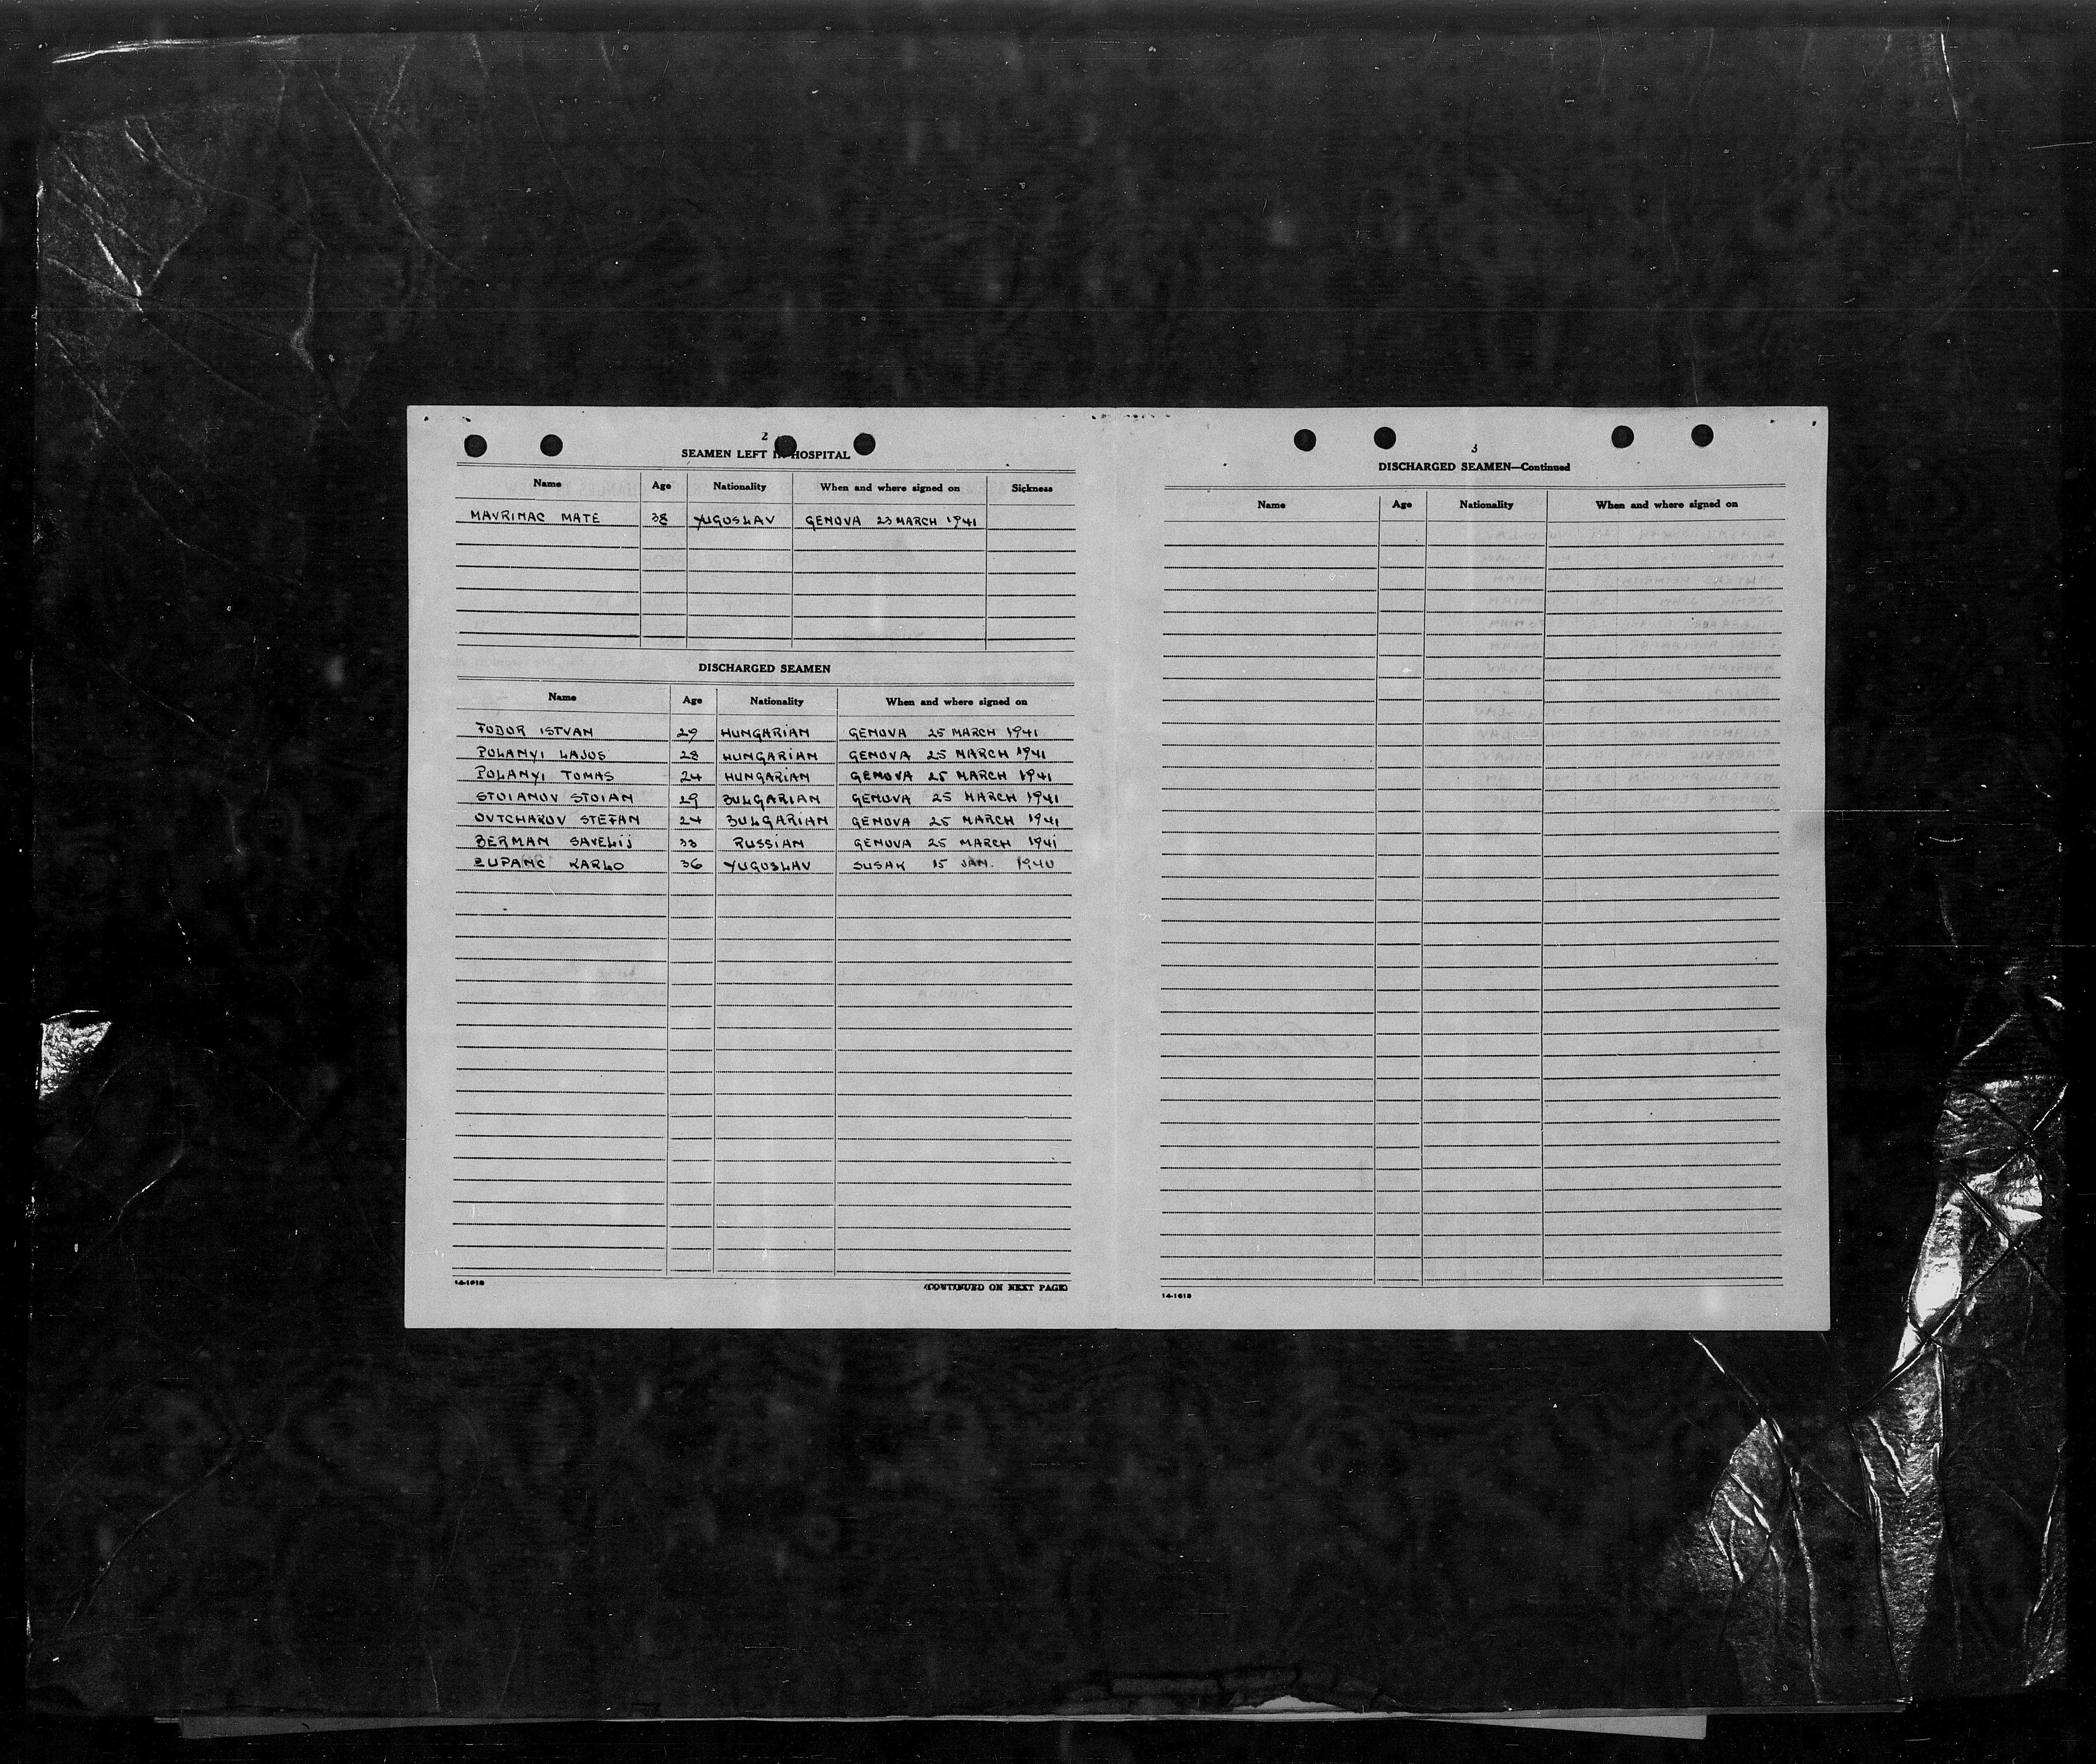 2
SEAMEN LEFT IN HOSPITAL
Name Age Nationality When and where signed on Sickness
MAVRINAC MATE 38 YUGOSLAV GENOVA 23 MARCH 1941
DISCHARGED SEAMEN
Name Age Nationality When and where signed on
FODOR ISTVAN 29 HUNGARIAN GENOVA 25 MARCH 1941
POLANYI LAJOS 28 HUNGARIAN GENOVA 25 MARCH 1941
POLANYI TOMAS 24 HUNGARIAN GENOVA 25 MARCH 1941
STOIANOV STOIAN 29 BULGARIAN GENOVA 25 MARCH 1941
OVTCHAROV STEFAN 24 BULGARIAN GENOVA 25 MARCH 1941
BERMAN SAVELIJ 33 RUSSIAN GENOVA 25 MARCH 1941
ZUPANC KARLO 36 YUGOSLAV SUSAK 15 JAN. 1940
14-1618 (CONTINUED ON NEXT PAGE)
3
DISCHARGED SEAMEN—Continued
Name Age Nationality When and where signed on
14-1618